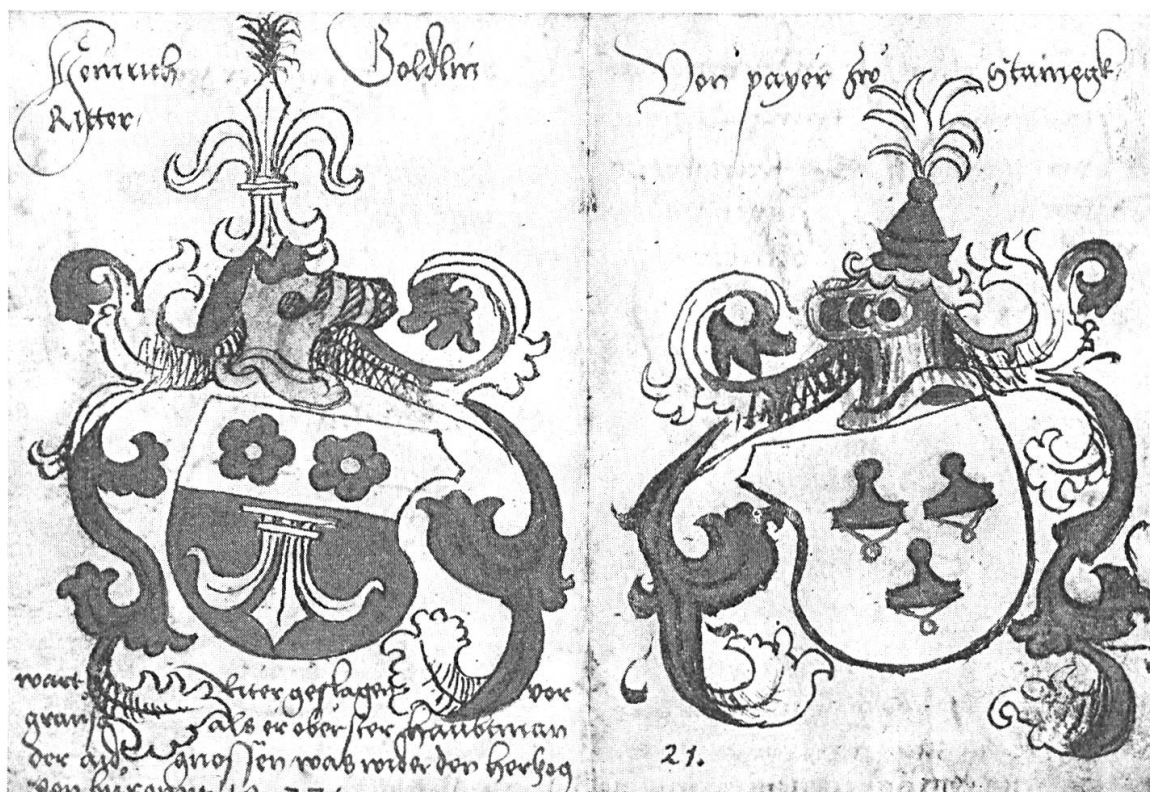 Heinrich Goldlin
Ritter
Von payer zů Stainegk
wart Riter geslagen vor
gransse als er oberster Haubtman
der aid gnossen was wider den Herzog
von
21.